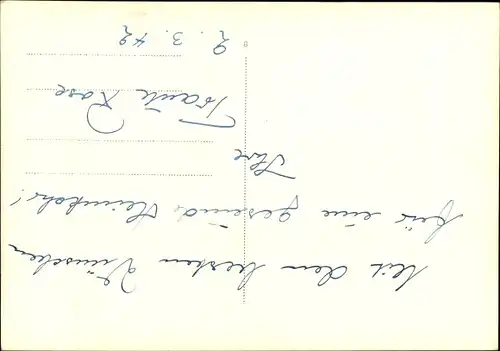 Mit den besten Wünschen
für eine gesunde Heimkehr!
Ihre
Traute Rose
2. 3. 42